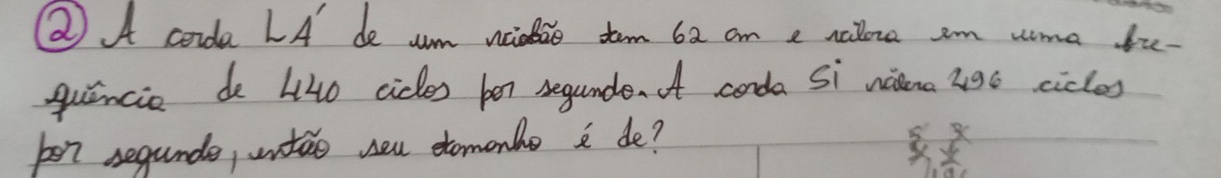 ② A corda LÁ de um violão tem 62 cm e vibra em uma fre-
quência de 440 ciclos por segundo. A corda Si vibra 496 ciclos
por segundo, então seu tamanho é de?